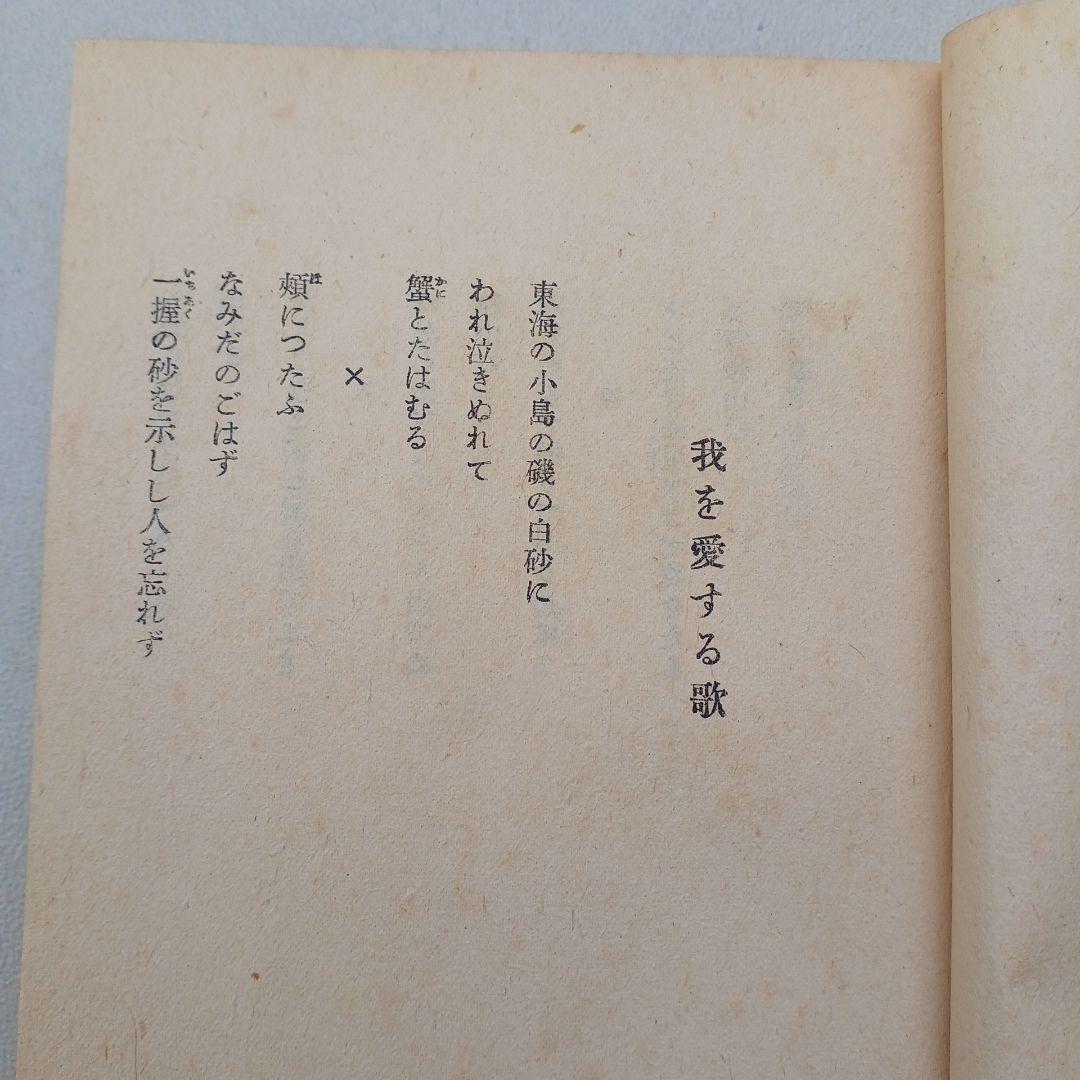 我を愛する歌
東海の小島の磯の白砂に
われ泣きぬれて
蟹とたはむる
×
頰につたふ
なみだのごはず
一握の砂を示しし人を忘れず